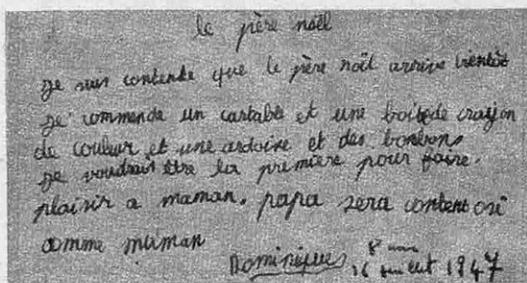 le père noël
je suis contende que le père noël arrive bientôt
je commende un cartable et une boite de crayon
de couleur et une ardoise et des bonbons
je voudrais être la première pour faire.
plaisir a maman. papa sera content
comme maman
Dominique 8 ans
16 1947